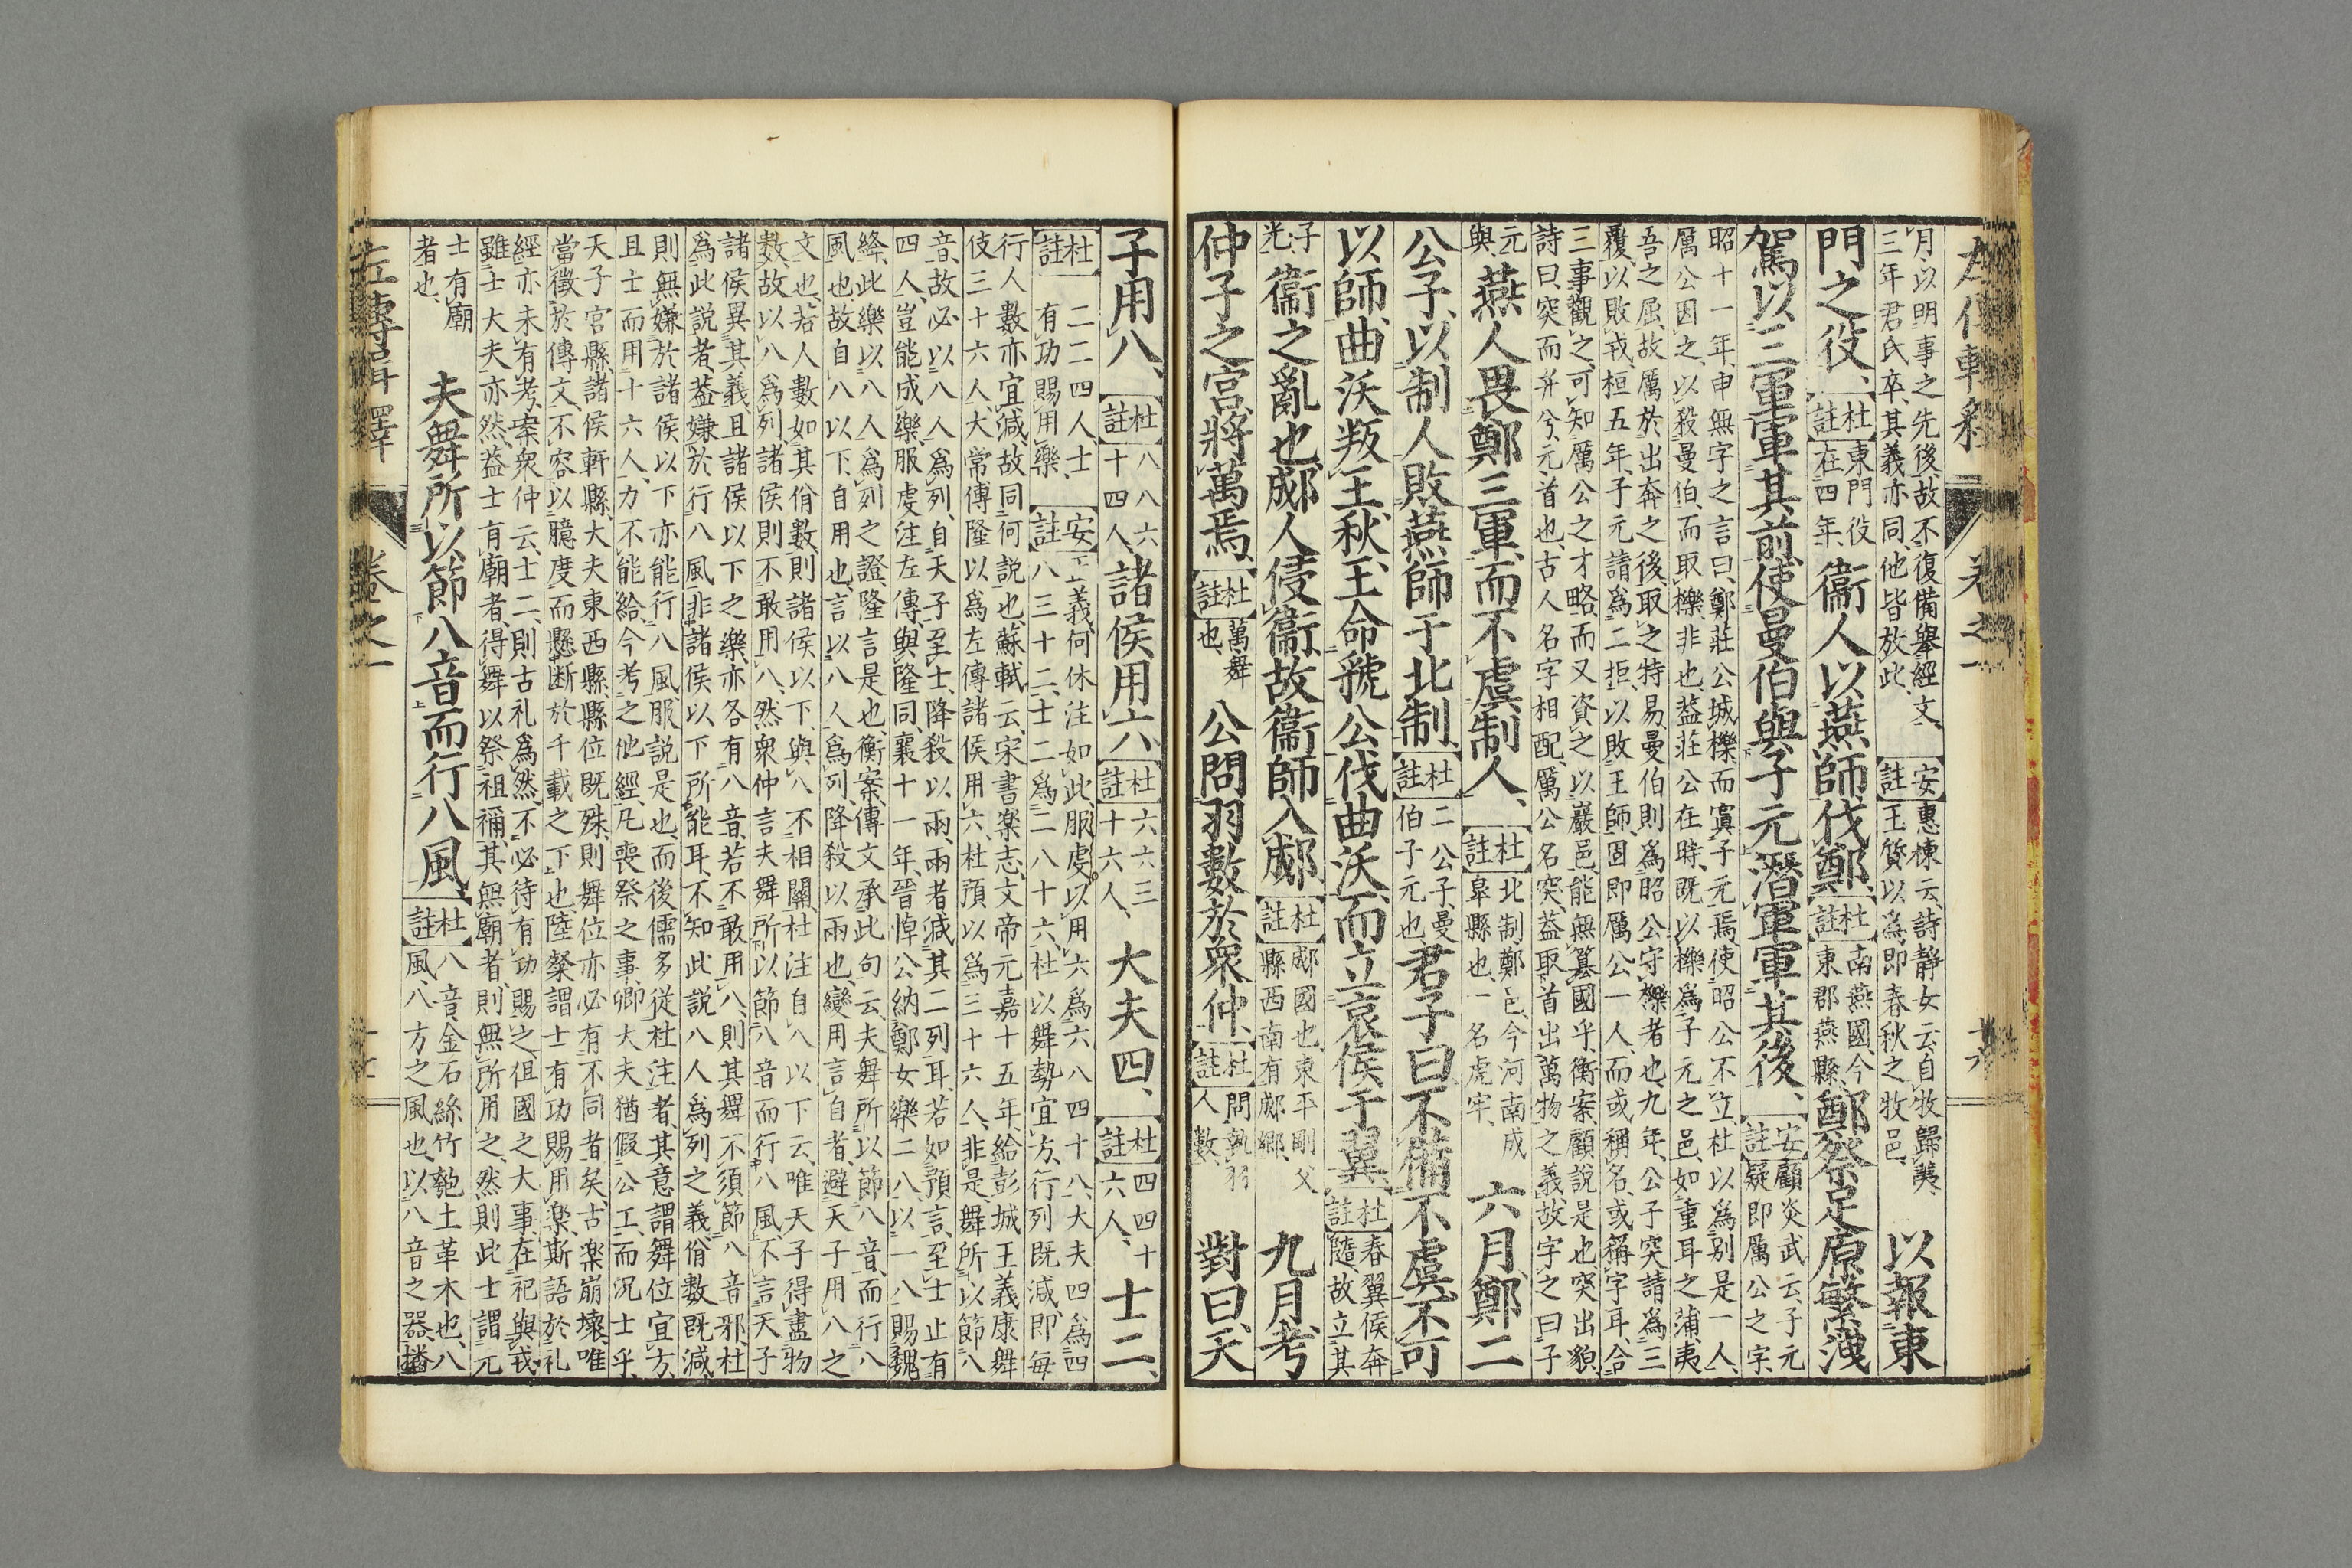 月以明事之先後故不復備舉經文、
三年君氏卒其義亦同他皆放此、
安註
惠棟云詩靜女云自牧歸荑、
王質以爲即春秋之牧邑、
以報東
門之役、
杜註
東門役
在四年、
衞人以燕師伐鄭、
杜註
南燕國今
東郡燕縣、
鄭祭足原繁洩
駕以三軍軍其前使曼伯與子元潛軍軍其後、
安註
顧炎武云子元
疑即厲公之字、
昭十一年申無字之言曰鄭莊公城櫟而寘子元焉使昭公不立杜以爲別是一人、
厲公因之以殺曼伯而取櫟非也蓋莊公在時既以櫟爲子元之邑如重耳之蒲夷
吾之屈故厲於出奔之後取之特易曼伯則爲昭公守櫟者也九年公子突請爲三
覆以敗戎桓五年子元請爲二拒以敗王師固即厲公一人而或稱名或稱字耳合
三事觀之可知厲公之才略而又資之以巖邑能無簒國乎衡案顧說是也突出貌
詩曰突而弁兮元首也古人名字相配厲公名突蓋取首出萬物之義故字之曰子
元
與
燕人畏鄭三軍而不虞制人、
杜註
北制鄭邑今河南成
皋縣也一名虎牢、
六月鄭二
公子以制人敗燕師于北制、
杜註
二公子曼
伯子元也
君子曰不備不虞不可
以師、曲沃叛王秋王命虢公伐曲沃而立哀侯于翼、
杜註
春翼侯奔
隨故立其
子
光
衞之亂也郕人侵衞故衞師入郕、
杜註
郕國也東平剛父
縣西南有郕鄉、
九月考
仲子之宮將萬焉、
杜註
萬舞
也、
公問羽數於衆仲、
杜註
問執羽
人數、
對曰天
子用八、
杜註
八八六
十四人、
諸侯用六、
杜註
六六三
十六人、
大夫四、
杜註
四四十
六人、
士二、
杜註
二二四人士、
有功賜用樂、
安註
二義何休注如此服虔以用六爲六八四十八大夫四爲四
八三十二士二爲二八十六杜以舞勢宜方行列既減即每
行人數亦宜減故同何説也蘇軾云宋書楽志文帝元嘉十五年給彭城王義康舞
伎三十六人大常傅隆以爲左傳諸侯用六杜預以爲三十六人非是舞所以節八
音故必以八人爲列自天子至士降殺以兩兩者減其二列耳若如預言至士止有
四人豈能成樂服虔注左傳與隆同襄十一年晉悼公納鄭女樂二八以一八賜魏
絳此樂以八人爲列之證隆言是也衡案傳文承此句云夫舞所以節八音而行八
風也故自八以下自用也言以八人爲列降殺以兩也變用言自者避天子用八之
文也若人數如其佾數則諸侯以下與八不相關杜注自八以下云唯天子得盡物
数故以八爲列諸侯則不敢用八然衆仲言夫舞所以節八音而行八風不言天子
諸侯異其義且諸侯以下之樂亦各有八音若不敢用八則其舞不須節八音邪杜
爲此説者蓋嫌於行八風非諸侯以下所能耳不知此説八人爲列之義佾数既減
則無嫌於諸侯以下亦能行八風服説是也而後儒多從杜注者其意謂舞位宜方、
且士而用十六人力不能給今考之他經凡喪祭之事卿大夫猶假公工而況士乎、
天子宮縣諸侯軒縣大夫東西縣縣位既殊則舞位亦必有不同者矣古楽崩壞唯
當徴於傳文不容以臆度而懸断於千載之下也陸粲謂士有功賜用楽斯語於礼
經亦未有考案衆仲云士二則古礼爲然不必待有功賜之但國之大事在祀與戎
雖士大夫亦然蓋士有廟者得舞以祭祖禰其無廟者則無所用之然則此士謂元
士有廟
者也、
夫舞所以節八音而行八風、
杜註
八音金石絲竹匏土革木也八
風八方之風也以八音之器播
左傳輯釋
卷之一